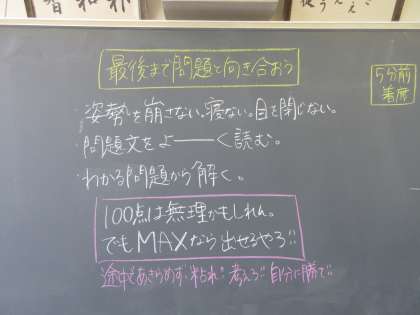 最後まで問題と向き合おう
5分前
着席
・姿勢を崩さない。寝ない。目を閉じない。
・問題文をよーーく読む。
・わかる問題から解く。
100点は無理かもしれん。
でもMAXなら出せるやろ!!
途中であきらめず、粘れ!!考えろ!!自分に勝て!!